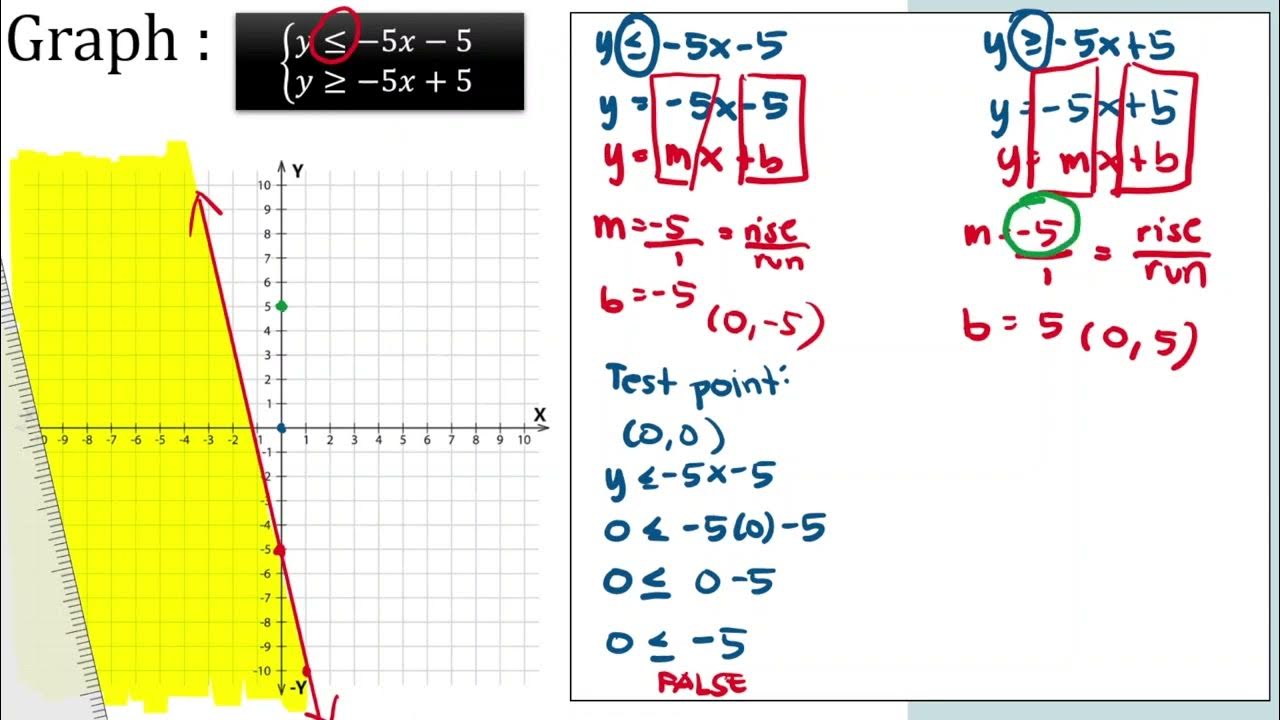 Graph :
y ≤ −5x − 5
y ≥ −5x + 5
Y
10
9
8
7
6
5
4
3
2
1
X
0 -9 -8 -7 -6 -5 -4 -3 -2 1 1 2 3 4 5 6 7 8 9 10
-1
2
3
-4
-5
-6
-7
-8
-9
-10
-Y
y ≤ -5x-5
y = -5x-5
y = mx+b
m = -5/1 = rise/run
b = -5 (0,-5)
Test point:
(0,0)
y ≤ -5x-5
0 ≤ -5(0)-5
0 ≤ 0-5
0 ≤ -5
FALSE
y ≥ -5x+5
y = -5x+5
y = mx+b
m = -5/1 = rise/run
b = 5 (0,5)